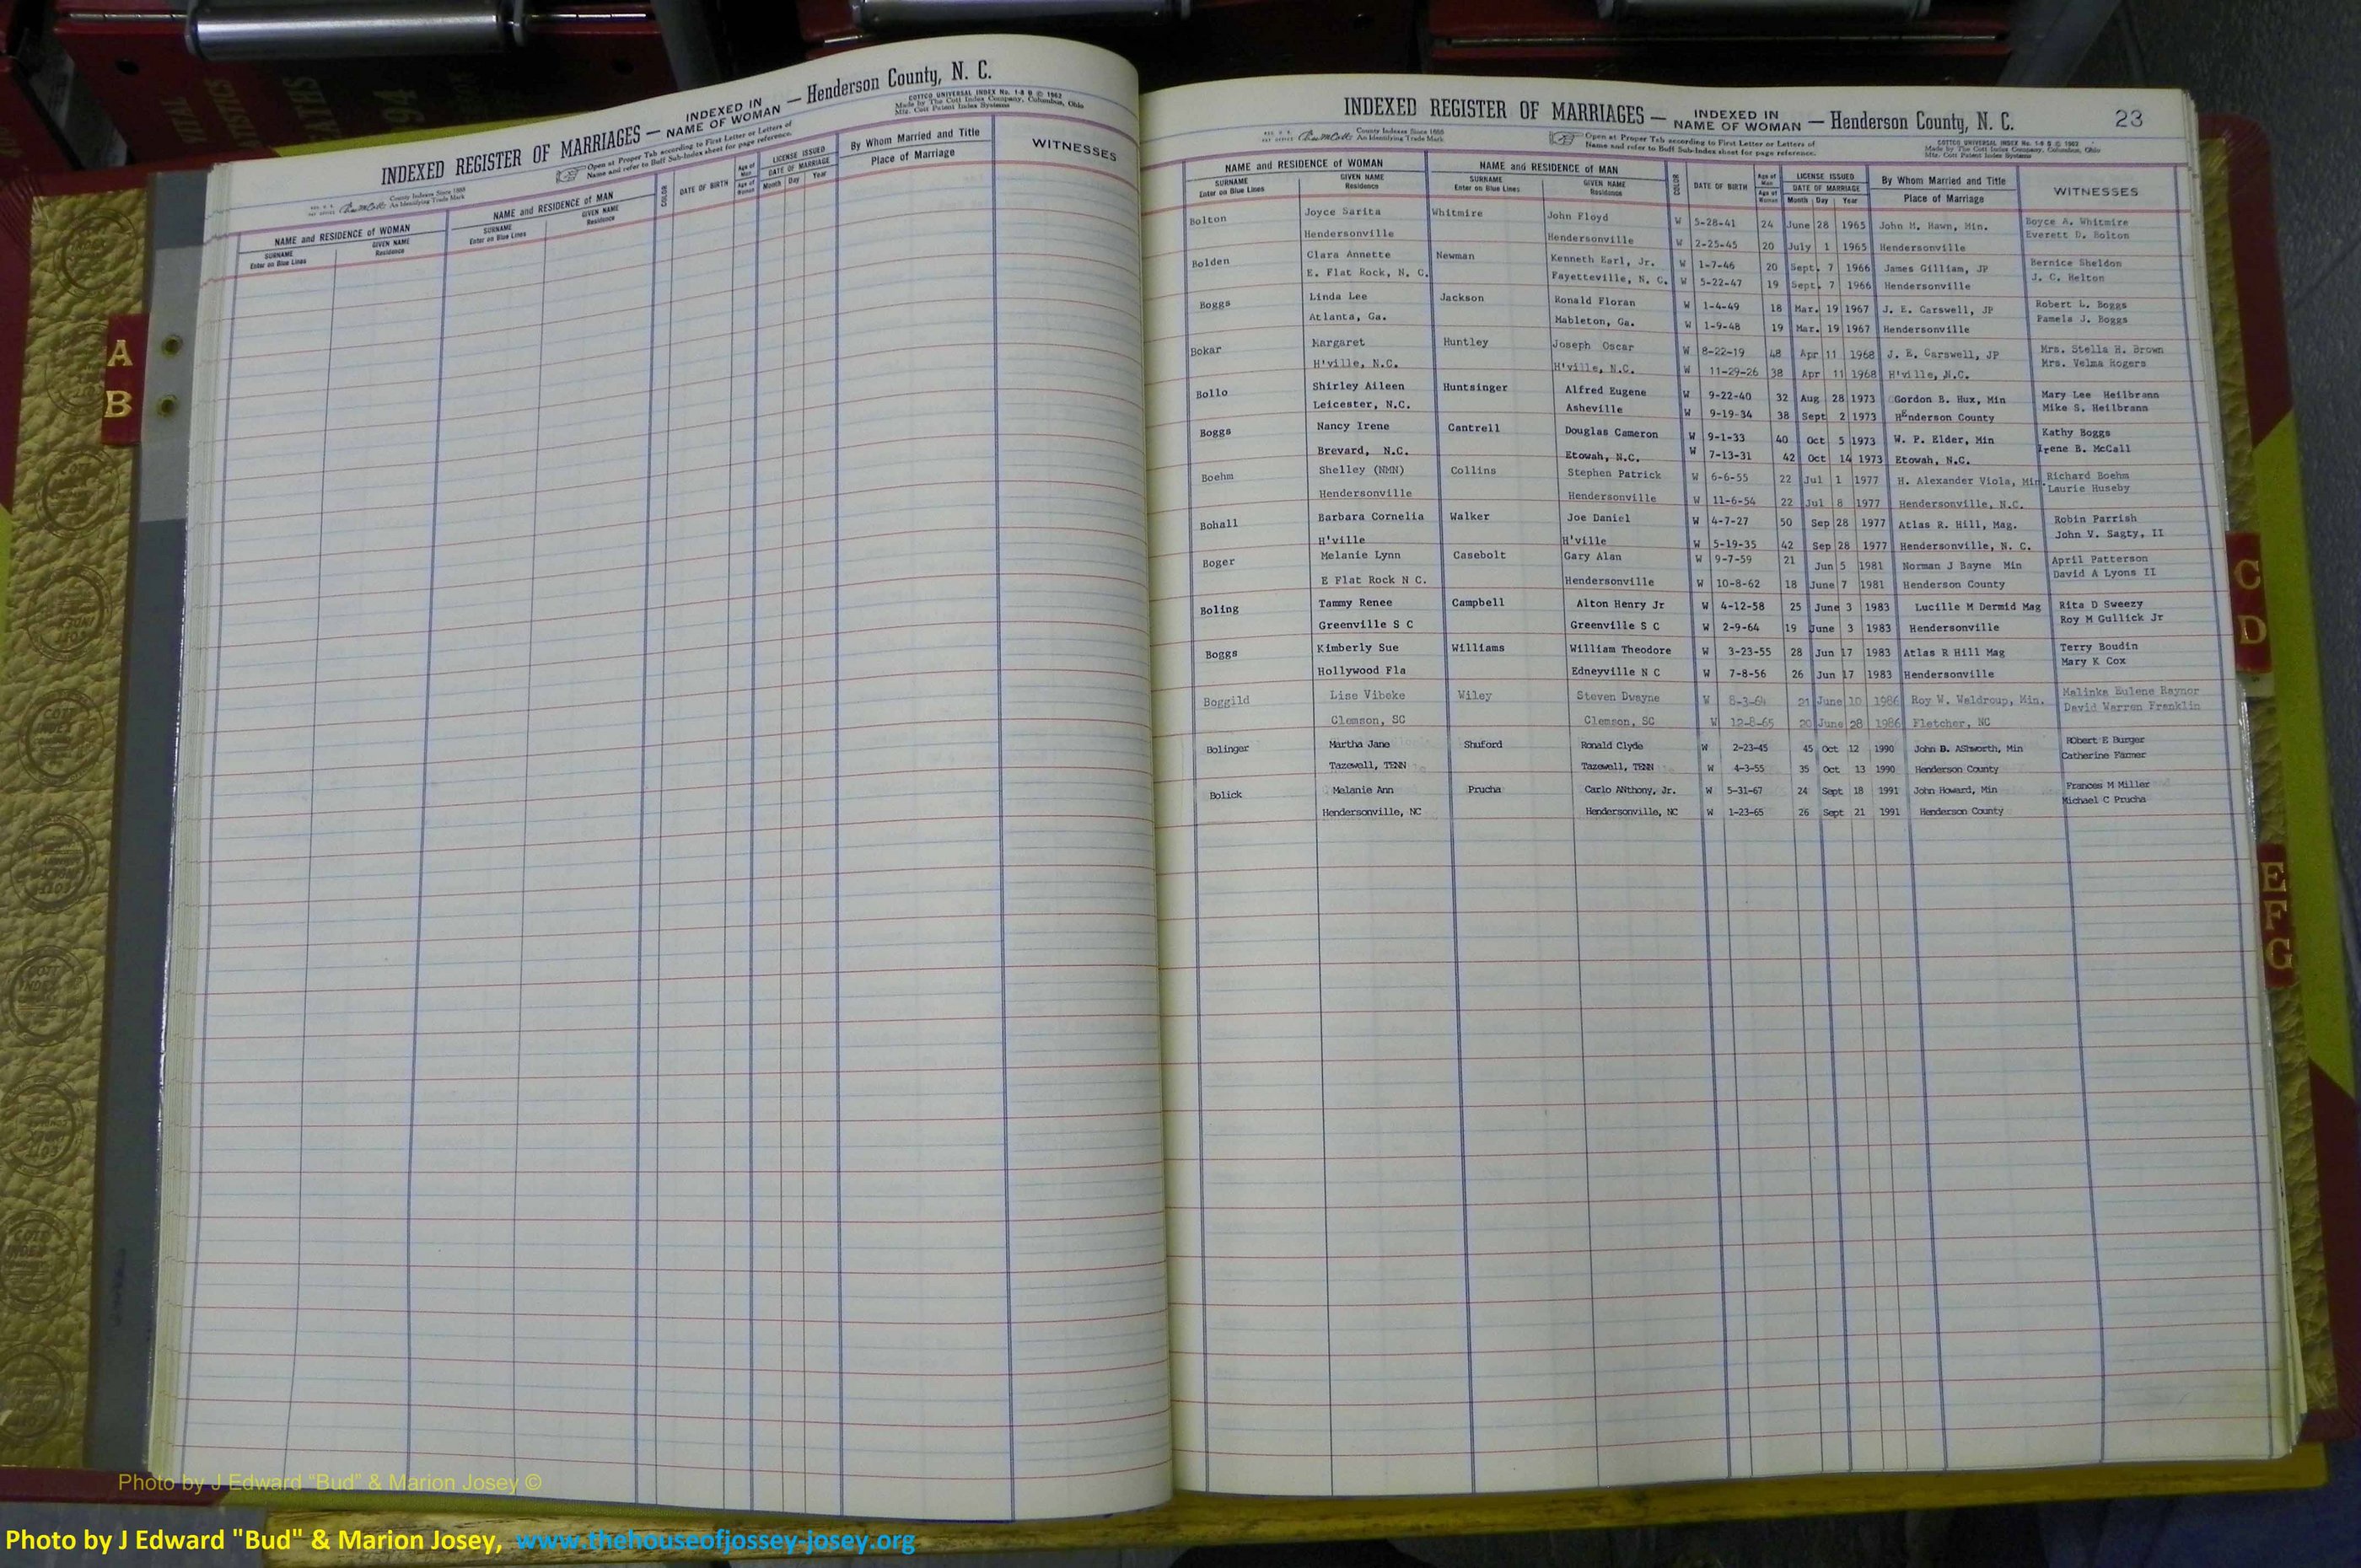 INDEXED REGISTER OF MARRIAGES — INDEXED IN NAME OF WOMAN — Henderson County, N. C.
COTTCO UNIVERSAL INDEX No. 1-9 B © 1962
Made by The Cott Index Company, Columbus, Ohio
Mfg. Cott Patent Index Systems
County Indexes Since 1888
An Identifying Trade Mark
Open at Proper Tab according to First Letter or Letters of
Name and refer to Buff Sub-Index sheet for page reference.
NAME and RESIDENCE OF WOMAN NAME and RESIDENCE OF MAN COLOR DATE OF BIRTH Age of Man LICENSE ISSUED By Whom Married and Title WITNESSES
SURNAME GIVEN NAME SURNAME GIVEN NAME Age of Woman DATE OF MARRIAGE Place of Marriage
Enter on Blue Lines Residence Enter on Blue Lines Residence Month Day Year
A
B
INDEXED REGISTER OF MARRIAGES — INDEXED IN NAME OF WOMAN — Henderson County, N. C. 23
County Indexes Since 1888
An Identifying Trade Mark
Open at Proper Tab according to First Letter or Letters of
Name and refer to Buff Sub-Index sheet for page reference.
COTTCO UNIVERSAL INDEX No. 1-9 B © 1962
Made by The Cott Index Company, Columbus, Ohio
Mfg. Cott Patent Index Systems
NAME and RESIDENCE OF WOMAN NAME and RESIDENCE OF MAN COLOR DATE OF BIRTH Age of Man LICENSE ISSUED By Whom Married and Title WITNESSES
SURNAME GIVEN NAME SURNAME GIVEN NAME Age of Woman DATE OF MARRIAGE Place of Marriage
Enter on Blue Lines Residence Enter on Blue Lines Residence Month Day Year
Bolton Joyce Sarita Whitmire John Floyd W 5-28-41 24 June 28 1965 John M. Hawn, Min. Boyce A. Whitmire
Hendersonville Hendersonville W 2-25-45 20 July 1 1965 Hendersonville Everett D. Bolton
Bolden Clara Annette Newman Kenneth Earl, Jr. W 1-7-46 20 Sept. 7 1966 James Gilliam, JP Bernice Sheldon
E. Flat Rock, N. C. Fayetteville, N. C. W 5-22-47 19 Sept. 7 1966 Hendersonville J. C. Helton
Boggs Linda Lee Jackson Ronald Floran W 1-4-49 18 Mar. 19 1967 J. E. Carswell, JP Robert L. Boggs
Atlanta, Ga. Mableton, Ga. W 1-9-48 19 Mar. 19 1967 Hendersonville Pamela J. Boggs
Bokar Margaret Huntley Joseph Oscar W 8-22-19 48 Apr 11 1968 J. E. Carswell, JP Mrs. Stella H. Brown
H'ville, N.C. H'ville, N.C. W 11-29-26 38 Apr 11 1968 H'ville, N.C. Mrs. Velma Rogers
Bollo Shirley Aileen Huntsinger Alfred Eugene W 9-22-40 32 Aug 28 1973 Gordon B. Hux, Min Mary Lee Heilbrann
Leicester, N.C. Asheville W 9-19-34 38 Sept 2 1973 HEnderson County Mike S. Heilbrann
Boggs Nancy Irene Cantrell Douglas Cameron W 9-1-33 40 Oct 5 1973 W. P. Elder, Min Kathy Boggs
Brevard, N.C. Etowah, N.C. W 7-13-31 42 Oct 14 1973 Etowah, N.C. Irene B. McCall
Boehm Shelley (NMN) Collins Stephen Patrick W 6-6-55 22 Jul 1 1977 H. Alexander Viola, Min. Richard Boehm
Hendersonville Hendersonville W 11-6-54 22 Jul 8 1977 Hendersonville, N.C. Laurie Huseby
Bohall Barbara Cornelia Walker Joe Daniel W 4-7-27 50 Sep 28 1977 Atlas R. Hill, Mag. Robin Parrish
H'ville H'ville W 5-19-35 42 Sep 28 1977 Hendersonville, N. C. John V. Sagty, II
Boger Melanie Lynn Casebolt Gary Alan W 9-7-59 21 Jun 5 1981 Norman J Bayne Min April Patterson
E Flat Rock N C. Hendersonville W 10-8-62 18 June 7 1981 Henderson County David A Lyons II
Boling Tammy Renee Campbell Alton Henry Jr W 4-12-58 25 June 3 1983 Lucille M Dermid Mag Rita D Sweezy
Greenville S C Greenville S C W 2-9-64 19 June 3 1983 Hendersonville Roy M Gullick Jr
Boggs Kimberly Sue Williams William Theodore W 3-23-55 28 Jun 17 1983 Atlas R Hill Mag Terry Boudin
Hollywood Fla Edneyville N C W 7-8-56 26 Jun 17 1983 Hendersonville Mary K Cox
Boggild Lise Vibeke Wiley Steven Dwayne W 8-3-64 21 June 10 1986 Roy W. Waldroup, Min. Malinka Eulene Raynor
Clemson, SC Clemson, SC W 12-8-65 20 June 28 1986 Fletcher, NC David Warren Franklin
Bolinger Martha Jane Shuford Ronald Clyde W 2-23-45 45 Oct 12 1990 John B. AShworth, Min RObert E Burger
Tazewell, TENN Tazewell, TENN W 4-3-55 35 Oct 13 1990 Henderson County Catherine Farmer
Bolick Melanie Ann Prucha Carlo ANthony, Jr. W 5-31-67 24 Sept 18 1991 John Howard, Min Frances M Miller
Hendersonville, NC Hendersonville, NC W 1-23-65 26 Sept 21 1991 Henderson County Michael C Prucha
C
D
E
F
G
Photo by J Edward “Bud” & Marion Josey ©
Photo by J Edward "Bud" & Marion Josey, www.thehouseofjossey-josey.org